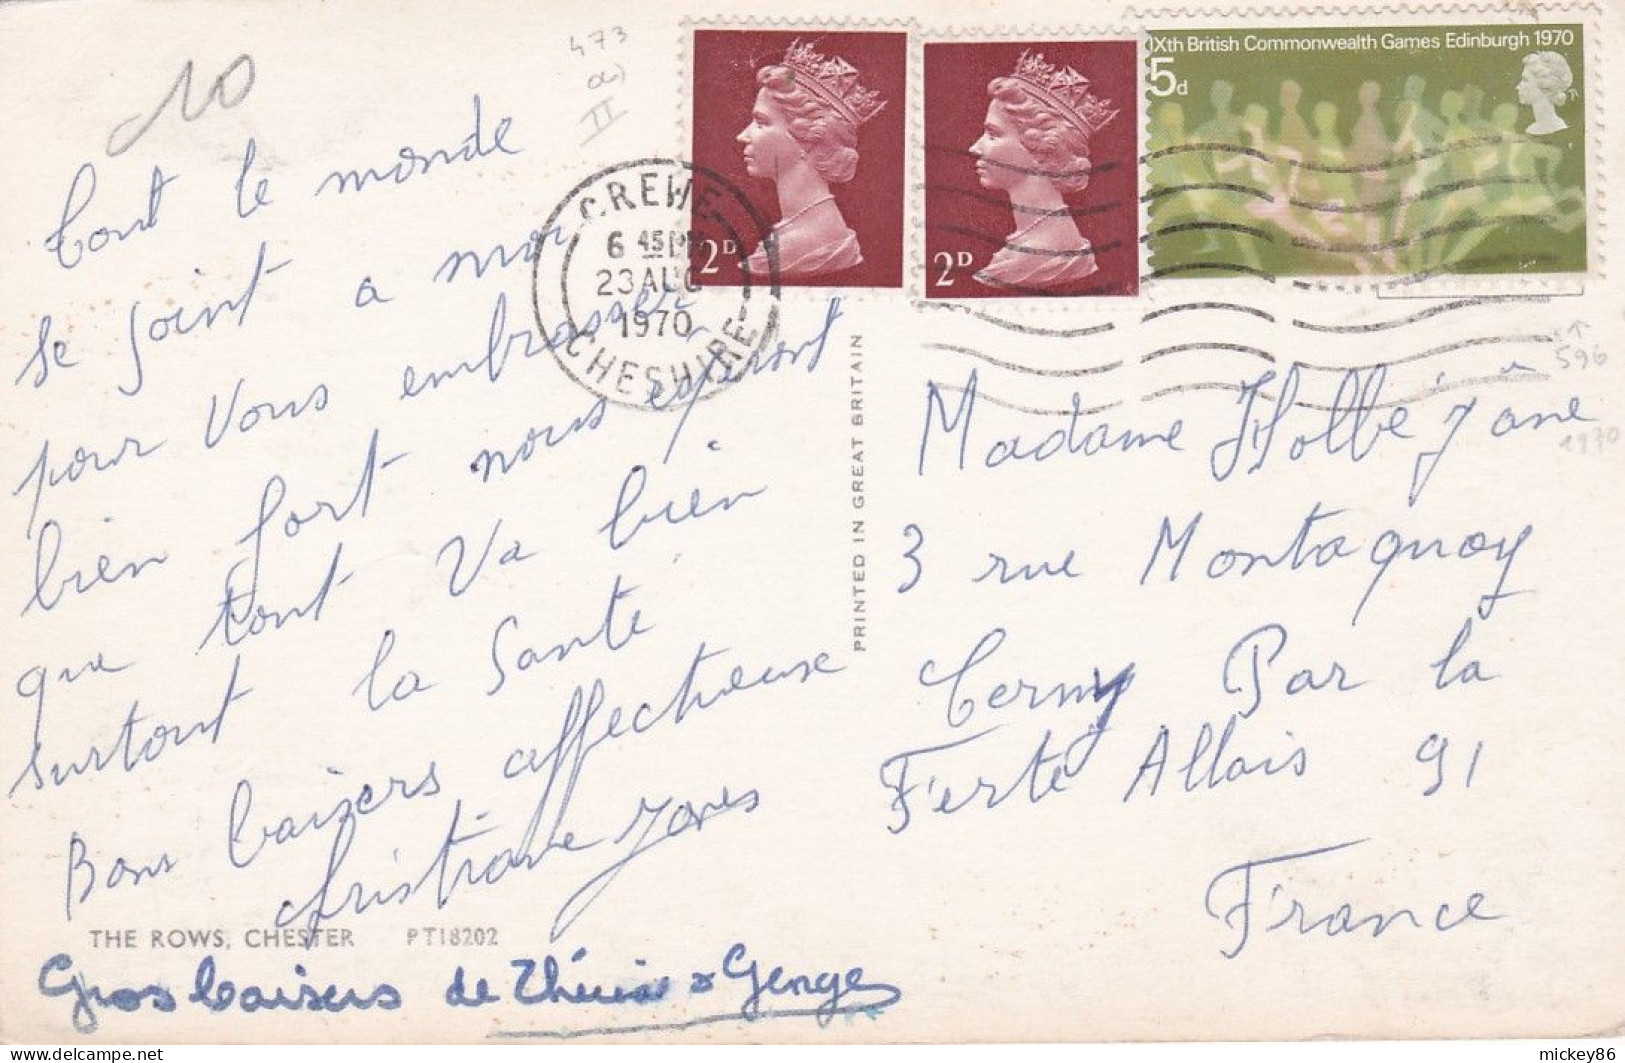 10
473
a)
II
Tout le monde
se joint a moi
pour vous embrasser
bien fort nous esperont
que tout va bien
surtout la santé
Bons baisers affectueuse
Christiane
THE ROWS, CHESTER PT18202
Gros baisers de Thérèse & Georges
CREWE
CHESHIRE
6 45 PM
23 AUG
1970
2D
2D
IXth British Commonwealth Games Edinburgh 1970
5d
596
1970
PRINTED IN GREAT BRITAIN
Madame
3 rue Montaquoy
Cerny Par la
Ferté Allais 91
France
mickey86